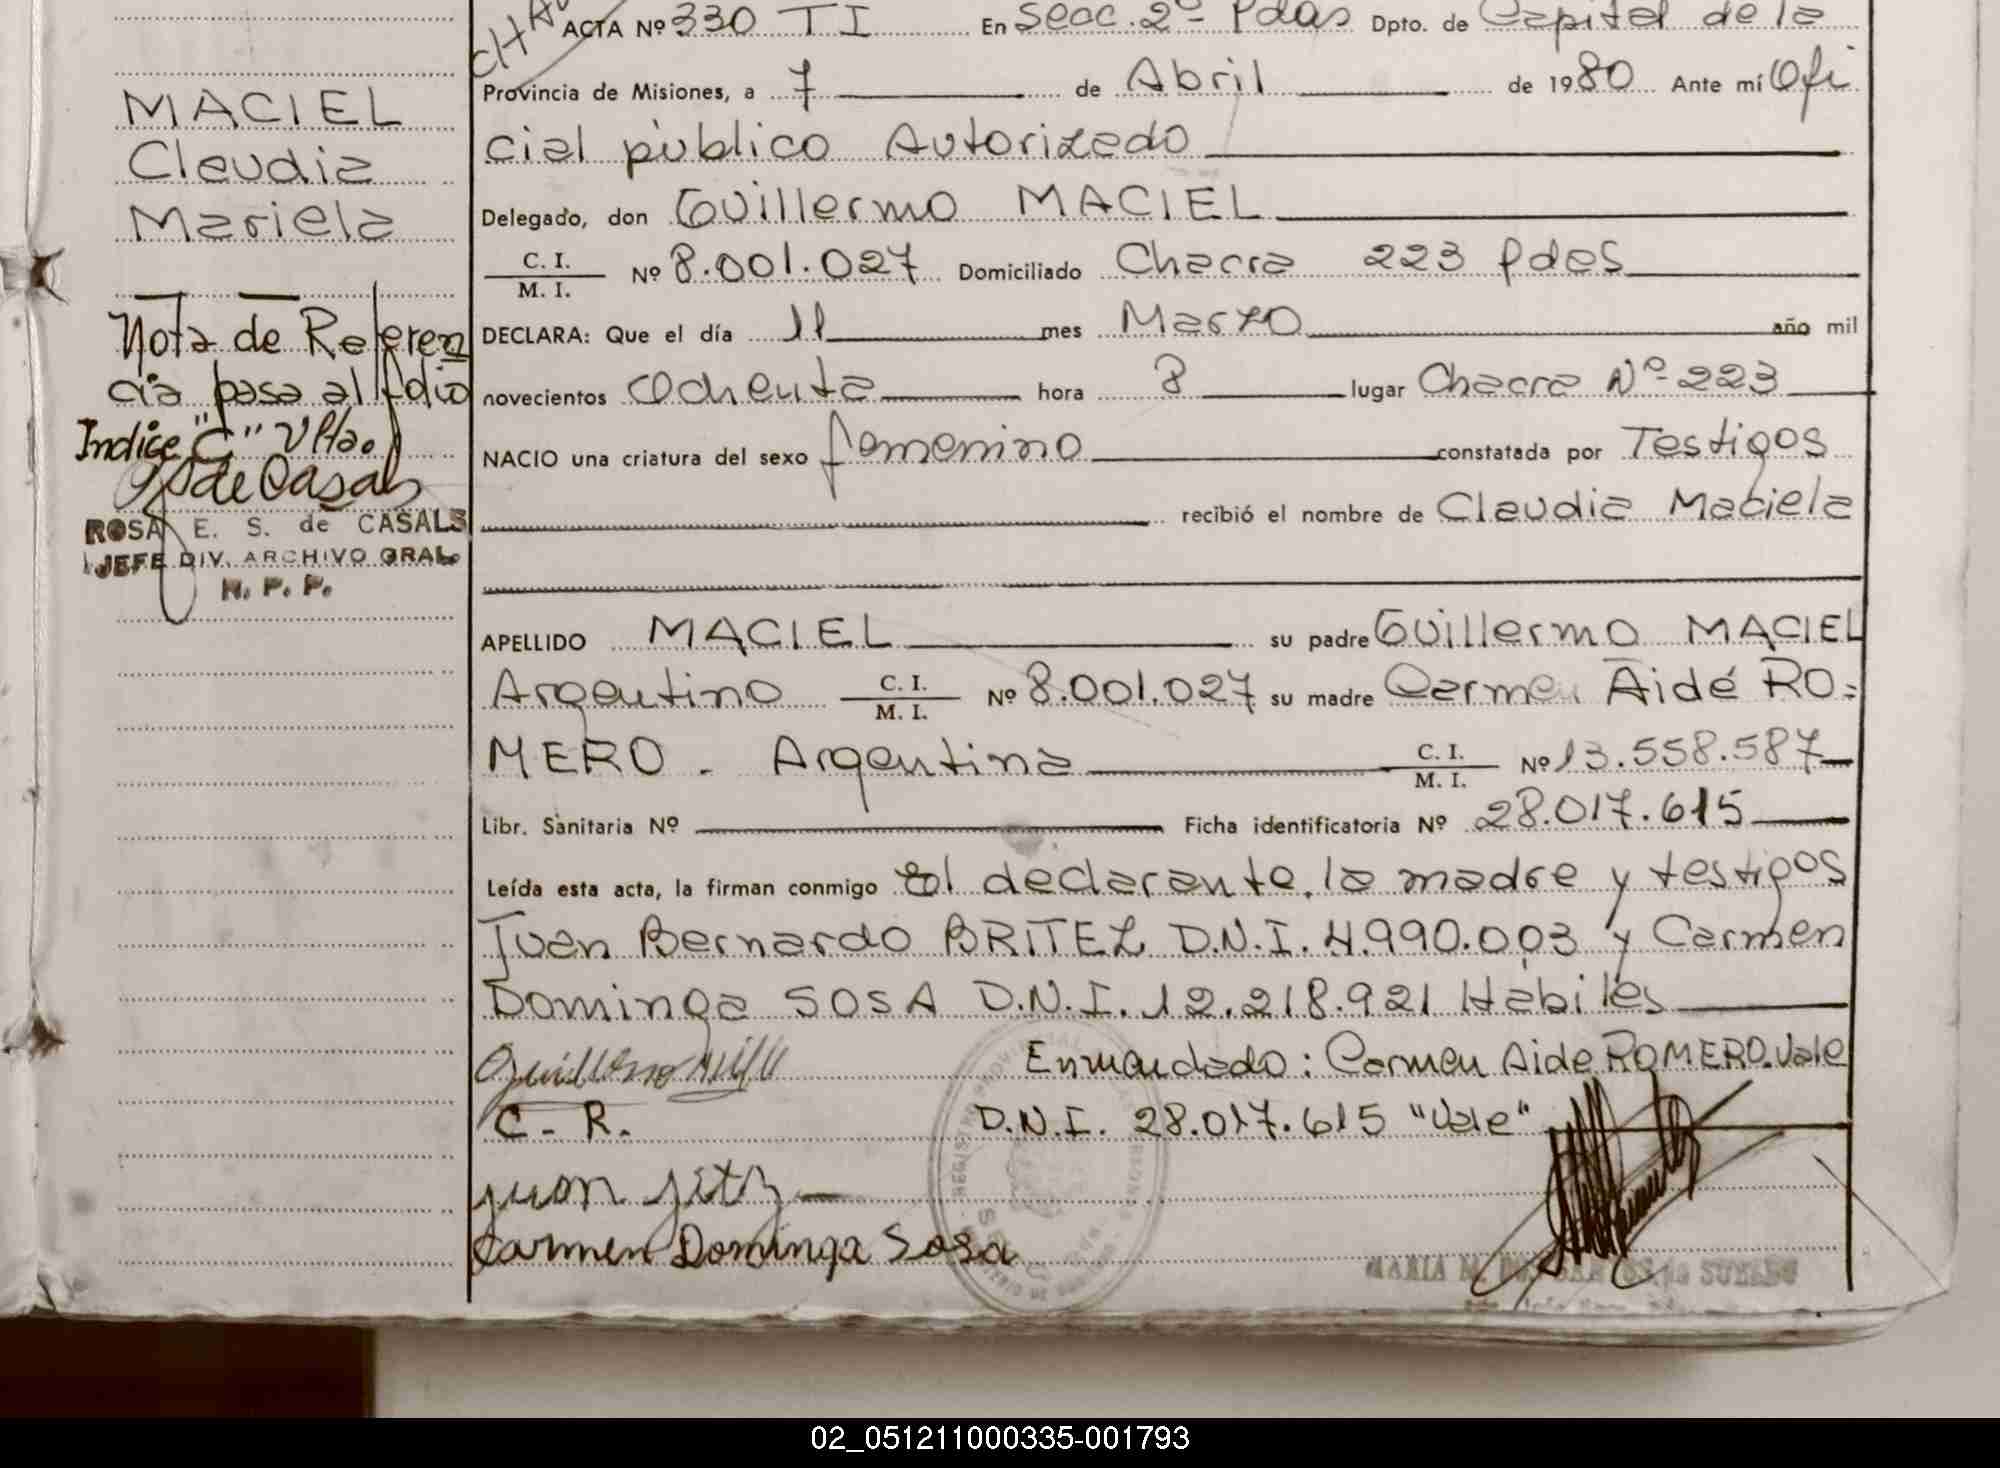 ACTA Nº 330 TI En Secc. 2º Pdas Dpto. de Capital de la
MACIEL
Claudia
Mariela
Provincia de Misiones, a 7 de Abril de 1980 Ante mí Ofi
cial público Autorizado
Delegado, don Guillermo MACIEL
C. I.
M. I.
Nº 8.001.027 Domiciliado Chacra 223 Pdas
Nota de Referen
cia pasa al folio
Indice "C" Vlta.
de Casals
ROSA E. S. de CASALS
JEFE DIV. ARCHIVO GRAL.
R. P. P.
DECLARA: Que el día 11 mes Marzo año mil
novecientos Ochenta hora 8 lugar Chacra Nº 223
NACIO una criatura del sexo femenino constatada por Testigos
recibió el nombre de Claudia Maciela
APELLIDO MACIEL su padre Guillermo MACIEL
Argentino C. I. M. I. Nº 8.001.027 su madre Carmen Aidé RO=
MERO. Argentina C. I. M. I. Nº 13.558.587
Libr. Sanitaria Nº Ficha identificatoria Nº 28.017.615
Leída esta acta, la firman conmigo el declarante, la madre y testigos
Juan Bernardo BRITEZ D.N.I. 4.990.003 y Carmen
Dominga SOSA D.N.I. 12.218.921 Habiles
Guillermo
Enmendado: Carmen Aide ROMERO. Vale
C. R.
D.N.I. 28.017.615 "Vale"
Juan
Carmen Dominga Sosa
MARIA M.
02_051211000335-001793